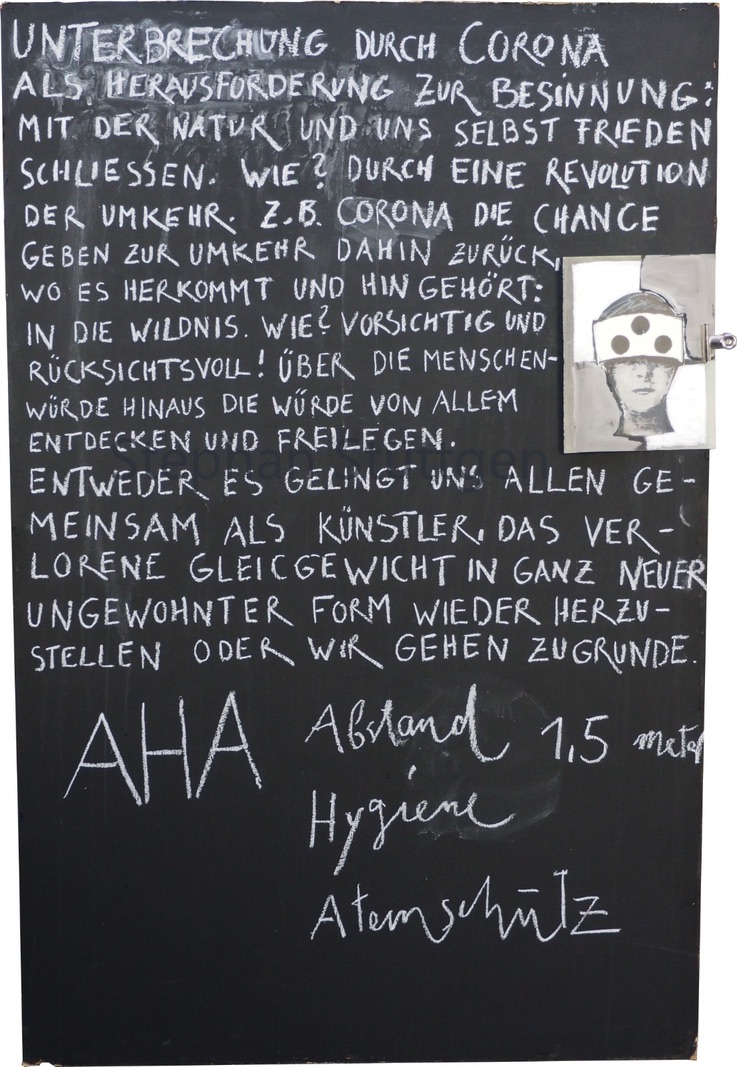 UNTERBRECHUNG DURCH CORONA
ALS HERAUSFORDERUNG ZUR BESINNUNG:
MIT DER NATUR UND UNS SELBST FRIEDEN
SCHLIESSEN. WIE? DURCH EINE REVOLUTION
DER UMKEHR. Z.B. CORONA DIE CHANCE
GEBEN ZUR UMKEHR DAHIN ZURÜCK,
WO ES HERKOMMT UND HIN GEHÖRT:
IN DIE WILDNIS. WIE? VORSICHTIG UND
RÜCKSICHTSVOLL! ÜBER DIE MENSCHEN-
WÜRDE HINAUS DIE WÜRDE VON ALLEM
ENTDECKEN UND FREILEGEN.
Stephan Stüttgen
ENTWEDER ES GELINGT UNS ALLEN GE-
MEINSAM ALS KÜNSTLER, DAS VER-
LORENE GLEICGEWICHT IN GANZ NEUER
UNGEWOHNTER FORM WIEDER HERZU-
STELLEN ODER WIR GEHEN ZUGRUNDE.
AHA Abstand 1,5 meter
Hygiene
Atemschutz